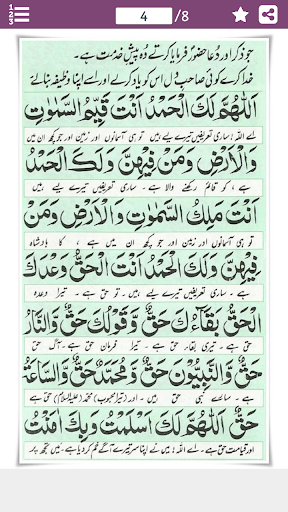 4 /8
جو ذکر اور دُعا حضورؐ فرمایا کرتے وُہ پیشِ خدمت ہے۔
خدا کرے کوئی صاحبِ دل اس کو یاد کرے اور اسے اپنا وظیفہ بنالے
اَللّٰهُمَّ لَكَ الْحَمْدُ اَنْتَ قَيِّمُ السَّمٰوٰتِ
لے اللہ! ساری تعریفیں تیرے لیے ہیں۔ تو ہی آسمانوں اور زمین اور جو کچھ ان میں
وَالْاَرْضِ وَمَنْ فِيْهِنَّ وَلَكَ الْحَمْدُ
ہے ، کو قائم رکھنے والا ہے۔ ساری تعریفیں تیرے لیے ہیں
اَنْتَ مَلِكُ السَّمٰوٰتِ وَالْاَرْضِ وَمَنْ
تو ہی آسمانوں اور زمین اور جو کچھ ان میں ہے ، کا بادشاہ
فِيْهِنَّ وَلَكَ الْحَمْدُ اَنْتَ الْحَقُّ وَوَعْدُكَ
ہے۔ ساری تعریفیں تیرے لیے ہیں۔ تو حق ہے۔ تیرا وعدہ
الْحَقُّ وَلِقَاءُكَ حَقٌّ وَقَوْلُكَ حَقٌّ وَالنَّارُ
حق ہے۔ تیری لقاء حق ہے۔ تیرا فرمان حق ہے۔ آگ حق
حَقٌّ وَّالنَّبِيُّوْنَ حَقٌّ وَّمُحَمَّدٌ حَقٌّ وَّالسَّاعَةُ
ہے۔ سارے نبی حق ہیں۔ اور (تیرا محبوب) محمد حق ہے
حَقٌّ اَللّٰهُمَّ لَكَ اَسْلَمْتُ وَبِكَ اٰمَنْتُ
اور قیامت حق ہے۔ لے اللہ! میں نے اپنا سر تیرے آگے خم کر دیا ہے۔ میں تجھ پر